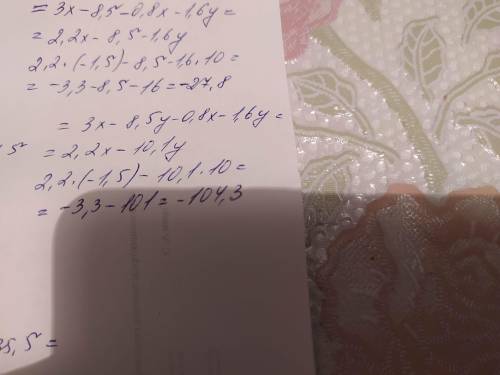 = 3x-8,5-0,8x-1,6y=
= 2,2x-8,5-1,6y
2,2·(-1,5)-8,5-16·10=
= -3,3-8,5-16=-27,8
= 3x-8,5y-0,8x-1,6y=
5 = 2,2x-10,1y
2,2·(-1,5)-10,1·10=
= -3,3-101=-104,3
35,5=